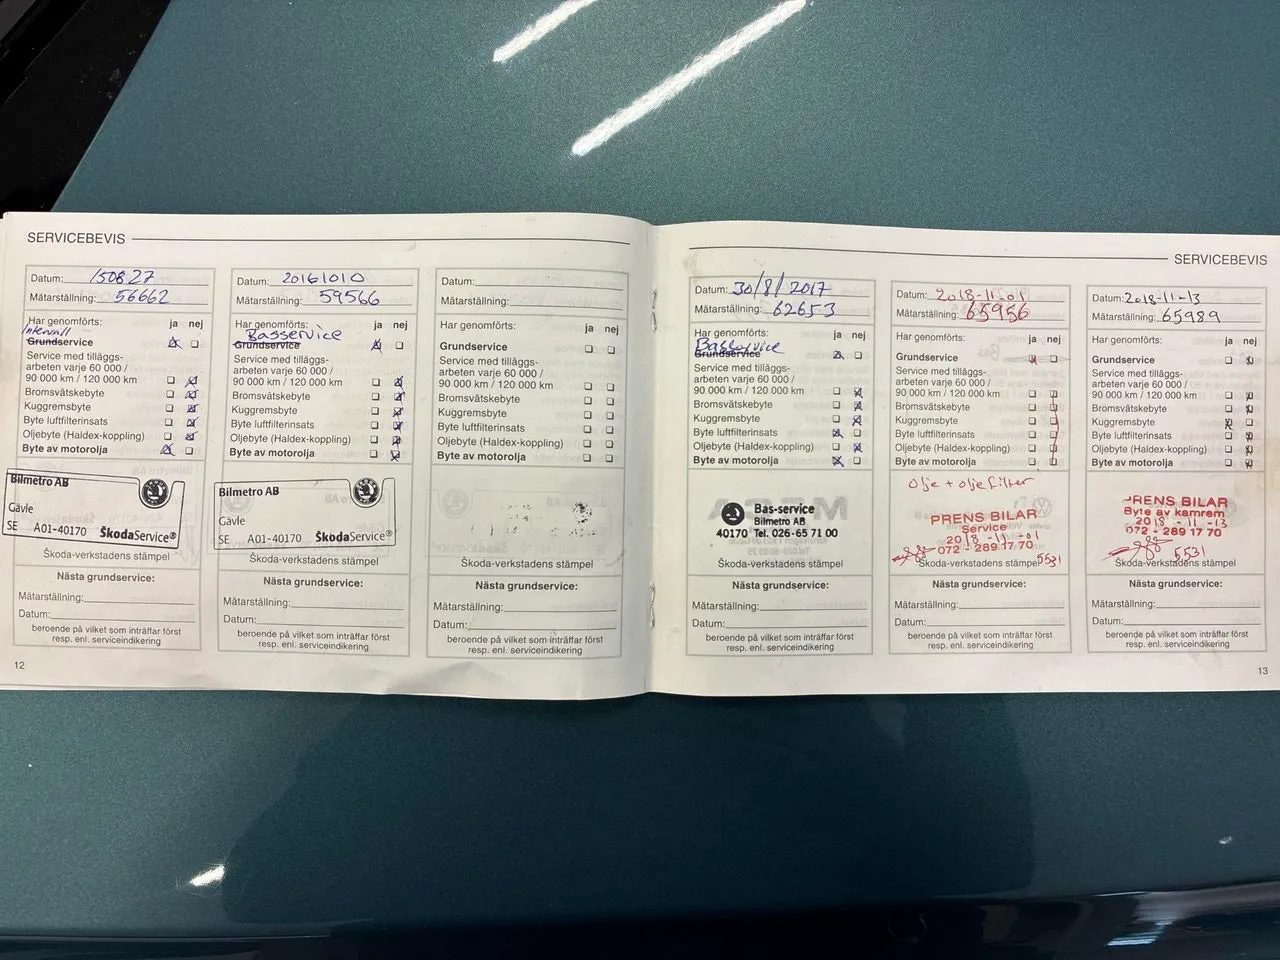 SERVICEBEVIS
Datum: 150827
Mätarställning: 56662
Har genomförts: ja nej
Intervall
Grundservice
Service med tilläggs-
arbeten varje 60 000 /
90 000 km / 120 000 km
Bromsvätskebyte
Kuggremsbyte
Byte luftfilterinsats
Oljebyte (Haldex-koppling)
Byte av motorolja
Bilmetro AB
Gävle
SE A01-40170 ŠkodaService®
Škoda-verkstadens stämpel
Nästa grundservice:
Mätarställning:
Datum:
beroende på vilket som inträffar först
resp. enl. serviceindikering
12
Datum: 20161010
Mätarställning: 59566
Har genomförts: ja nej
Basservice
Grundservice
Service med tilläggs-
arbeten varje 60 000 /
90 000 km / 120 000 km
Bromsvätskebyte
Kuggremsbyte
Byte luftfilterinsats
Oljebyte (Haldex-koppling)
Byte av motorolja
Bilmetro AB
Gävle
SE A01-40170 ŠkodaService®
Škoda-verkstadens stämpel
Nästa grundservice:
Mätarställning:
Datum:
beroende på vilket som inträffar först
resp. enl. serviceindikering
Datum:
Mätarställning:
Har genomförts: ja nej
Grundservice
Service med tilläggs-
arbeten varje 60 000 /
90 000 km / 120 000 km
Bromsvätskebyte
Kuggremsbyte
Byte luftfilterinsats
Oljebyte (Haldex-koppling)
Byte av motorolja
Škoda-verkstadens stämpel
Nästa grundservice:
Mätarställning:
Datum:
beroende på vilket som inträffar först
resp. enl. serviceindikering
SERVICEBEVIS
Datum: 30/8/2017
Mätarställning: 62653
Har genomförts: ja nej
Basservice
Grundservice
Service med tilläggs-
arbeten varje 60 000 /
90 000 km / 120 000 km
Bromsvätskebyte
Kuggremsbyte
Byte luftfilterinsats
Oljebyte (Haldex-koppling)
Byte av motorolja
Bas-service
Bilmetro AB
40170 Tel. 026-65 71 00
Škoda-verkstadens stämpel
Nästa grundservice:
Mätarställning:
Datum:
beroende på vilket som inträffar först
resp. enl. serviceindikering
Datum: 2018-11-01
Mätarställning: 65956
Har genomförts: ja nej
Grundservice
Service med tilläggs-
arbeten varje 60 000 /
90 000 km / 120 000 km
Bromsvätskebyte
Kuggremsbyte
Byte luftfilterinsats
Oljebyte (Haldex-koppling)
Byte av motorolja
Olje + olje filter
PRENS BILAR
Service
2018 -11 -01
072 - 289 17 70
Škoda-verkstadens stämpel 5531
Nästa grundservice:
Mätarställning:
Datum:
beroende på vilket som inträffar först
resp. enl. serviceindikering
Datum: 2018-11-13
Mätarställning: 65989
Har genomförts: ja nej
Grundservice
Service med tilläggs-
arbeten varje 60 000 /
90 000 km / 120 000 km
Bromsvätskebyte
Kuggremsbyte
Byte luftfilterinsats
Oljebyte (Haldex-koppling)
Byte av motorolja
PRENS BILAR
Byte av kamrem
2018 -11 -13
072 - 289 17 70
5531
Škoda-verkstadens stämpel
Nästa grundservice:
Mätarställning:
Datum:
beroende på vilket som inträffar först
resp. enl. serviceindikering
13